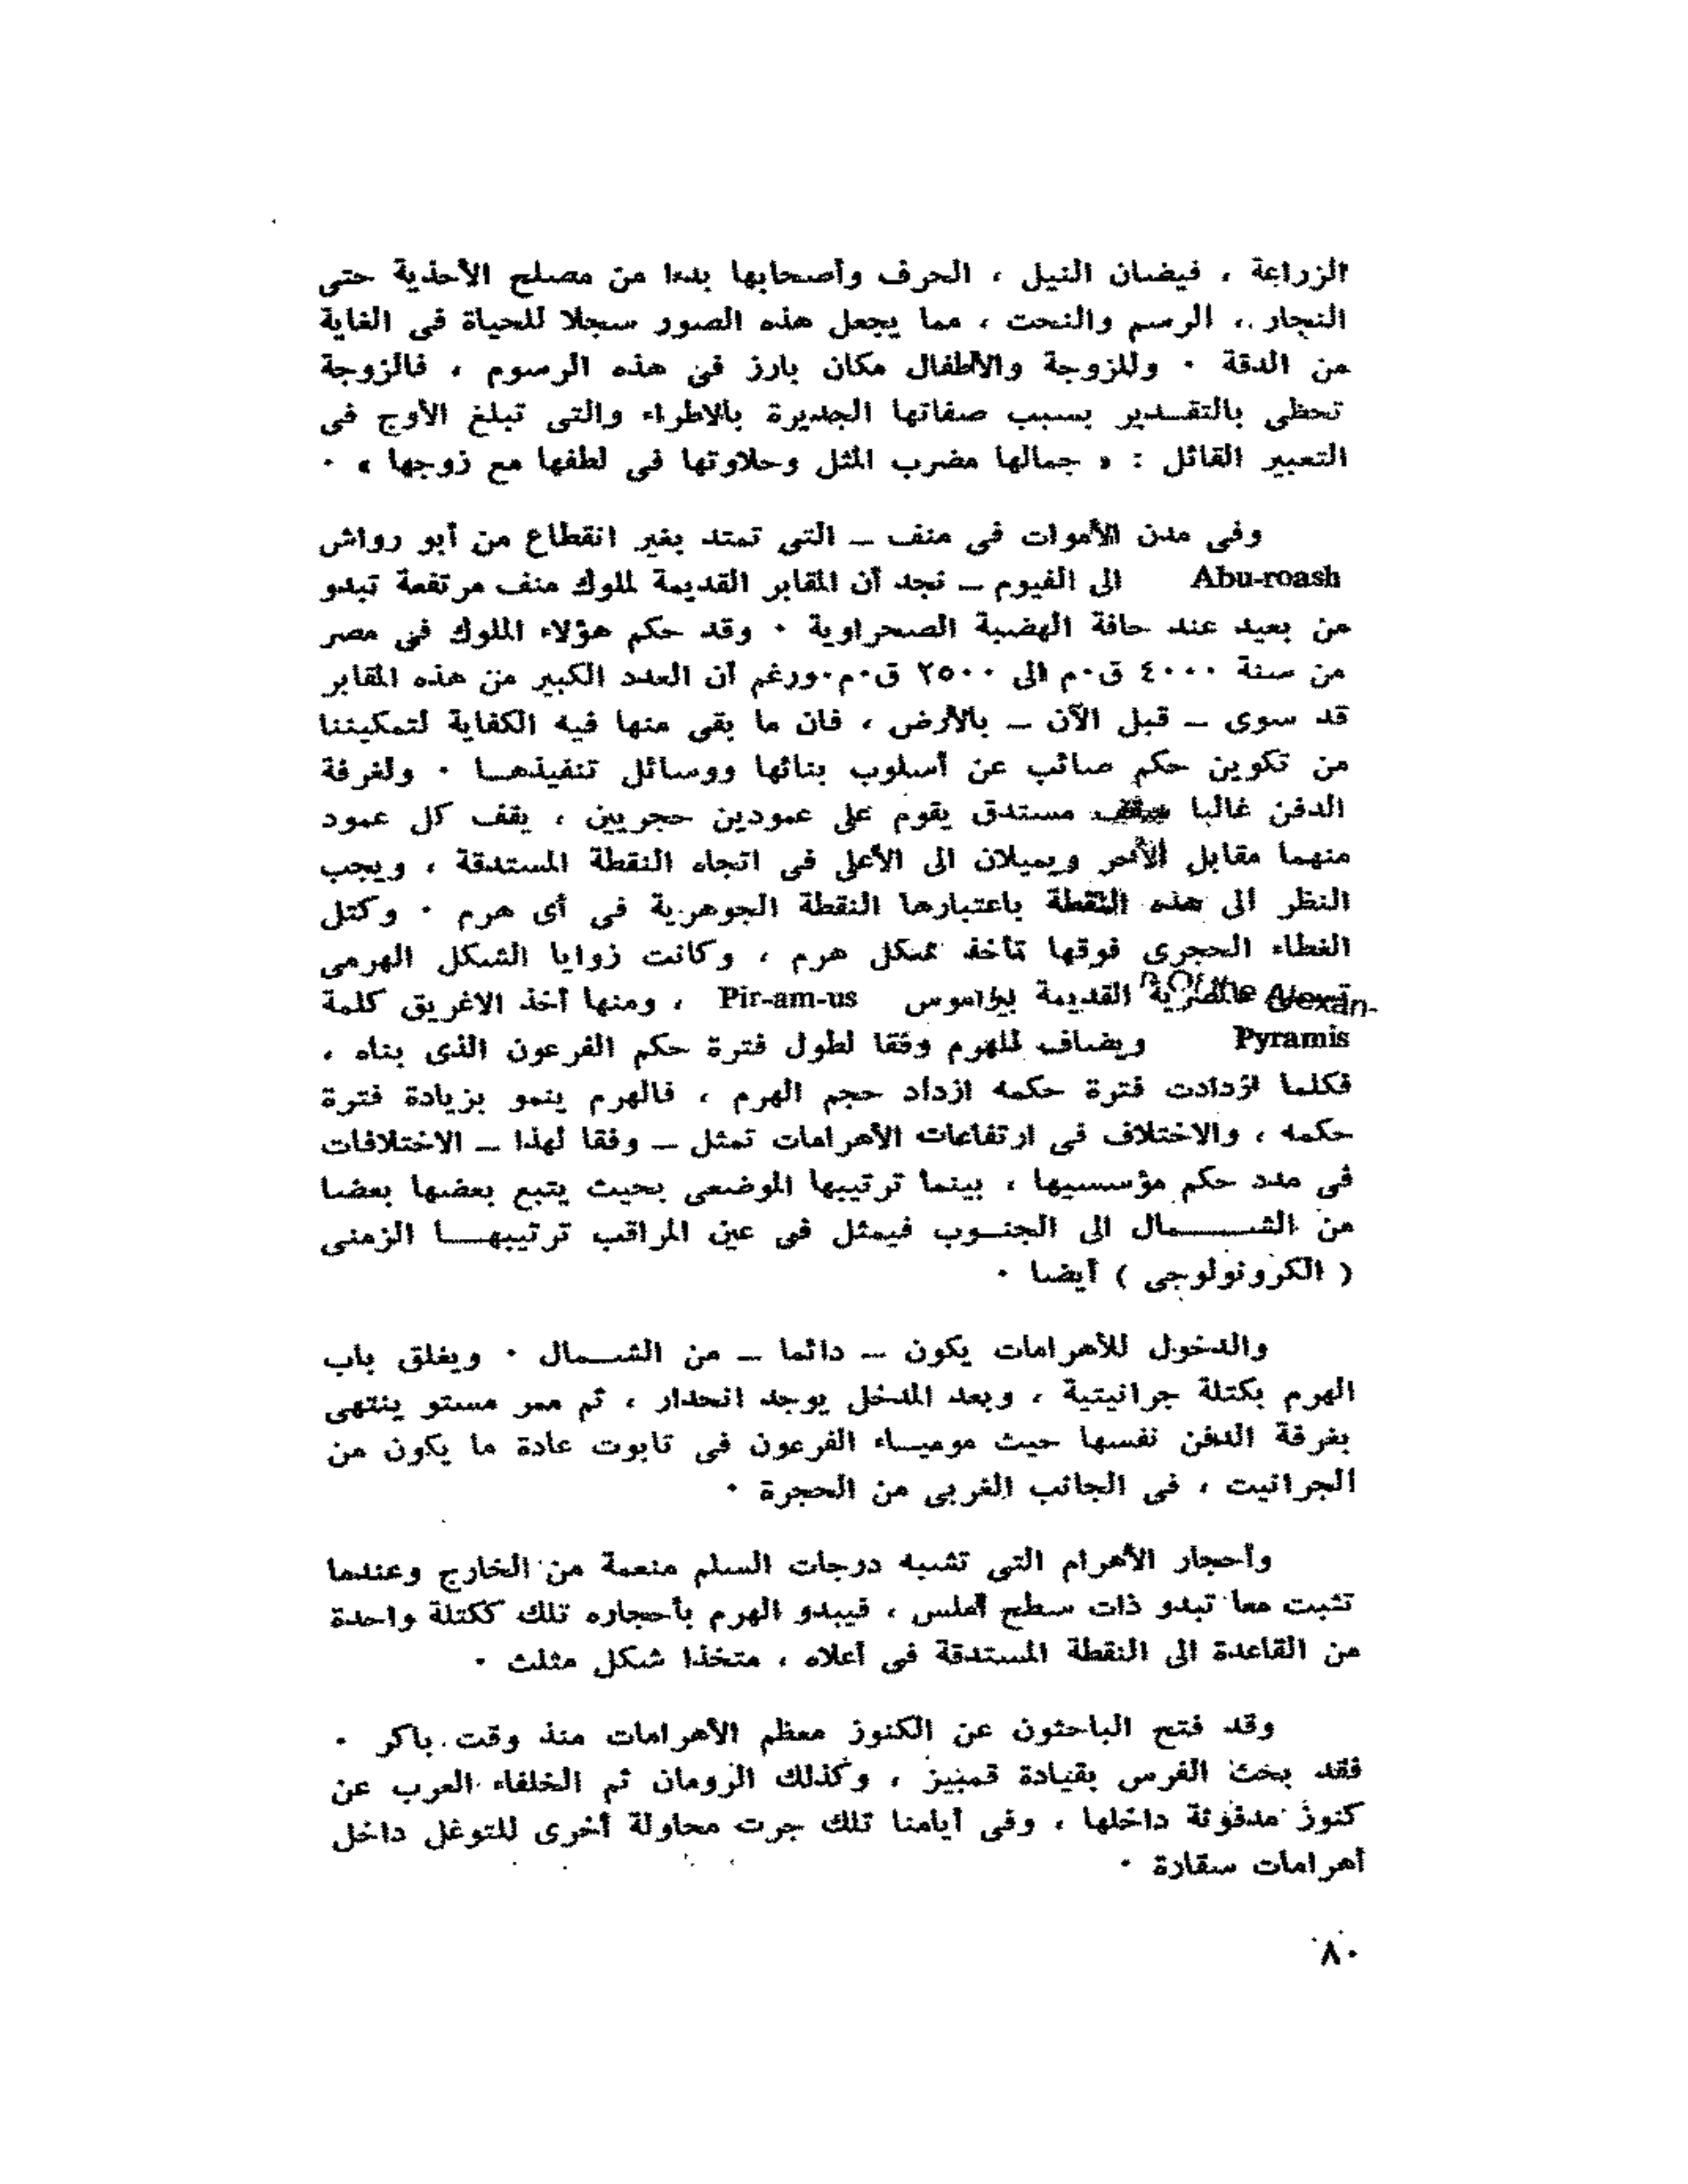 الزراعة ، فيضان النيل ، الحرف وأصحابها بدءا من مصلح الأحذية حتى
النجار ، الرسم والنحت ، مما يجعل هذه الصور سجلا للحياة فى الغاية
من الدقة ٠ وللزوجة والأطفال مكان بارز فى هذه الرسوم ، فالزوجة
تحظى بالتقدير بسبب صفاتها الجديرة بالاطراء والتى تبلغ الأوج فى
التعبير القائل : « جمالها مضرب المثل وحلاوتها فى لطفها مع زوجها » ٠
وفى مدن الأموات فى منف ــ التى تمتد بغير انقطاع من أبو رواش
Abu-roash الى الفيوم ــ نجد أن المقابر القديمة لملوك منف مرتفعة تبدو
من بعيد عند حافة الهضبة الصحراوية ٠ وقد حكم هؤلاء الملوك فى مصر
من سنة ٤٠٠٠ ق٠م الى ٢٥٠٠ ق٠م٠ورغم أن العدد الكبير من هذه المقابر
قد سوى ــ قبل الآن ــ بالأرض ، فان ما بقى منها فيه الكفاية لتمكيننا
من تكوين حكم صائب عن أسلوب بنائها ووسائل تنفيذها ٠ ولغرفة
الدفن غالبا سقف مستدق يقوم على عمودين حجريين ، يقف كل عمود
منهما مقابل الآخر ويميلان الى الأعلى فى اتجاه النقطة المستدقة ، ويجب
النظر الى هذه النقطة باعتبارها النقطة الجوهرية فى أى هرم ٠ وكتل
الغطاء الحجرى فوقها تأخذ شكل هرم ، وكانت زوايا الشكل الهرمى
القديمة بيراموس Pir-am-us ، ومنها أخذ الاغريق كلمة
Pyramis ويضاف للهرم وفقا لطول فترة حكم الفرعون الذى بناه ،
فكلما ازدادت فترة حكمه ازداد حجم الهرم ، فالهرم ينمو بزيادة فترة
حكمه ، والاختلاف فى ارتفاعات الأهرامات تمثل ــ وفقا لهذا ــ الاختلافات
فى مدد حكم مؤسسيها ، بينما ترتيبها الموضعى بحيث يتبع بعضها بعضا
من الشمال الى الجنوب فيمثل فى عين المراقب ترتيبها الزمنى
( الكرونولوجى ) أيضا ٠
والدخول للأهرامات يكون ــ دائما ــ من الشمال ٠ ويغلق باب
الهرم بكتلة جرانيتية ، وبعد المدخل يوجد انحدار ، ثم ممر مستو ينتهى
بغرفة الدفن نفسها حيث مومياء الفرعون فى تابوت عادة ما يكون من
الجرانيت ، فى الجانب الغربى من الحجرة ٠
وأحجار الأهرام التى تشبه درجات السلم منعمة من الخارج وعندما
تثبت معا تبدو ذات سطح أملس ، فيبدو الهرم بأحجاره تلك ككتلة واحدة
من القاعدة الى النقطة المستدقة فى أعلاه ، متخذا شكل مثلث ٠
وقد فتح الباحثون عن الكنوز معظم الأهرامات منذ وقت باكر ٠
فقد بحث الفرس بقيادة قمبيز ، وكذلك الرومان ثم الخلفاء العرب عن
كنوز مدفونة داخلها ، وفى أيامنا تلك جرت محاولة أخرى للتوغل داخل
أهرامات سقارة ٠
٨٠